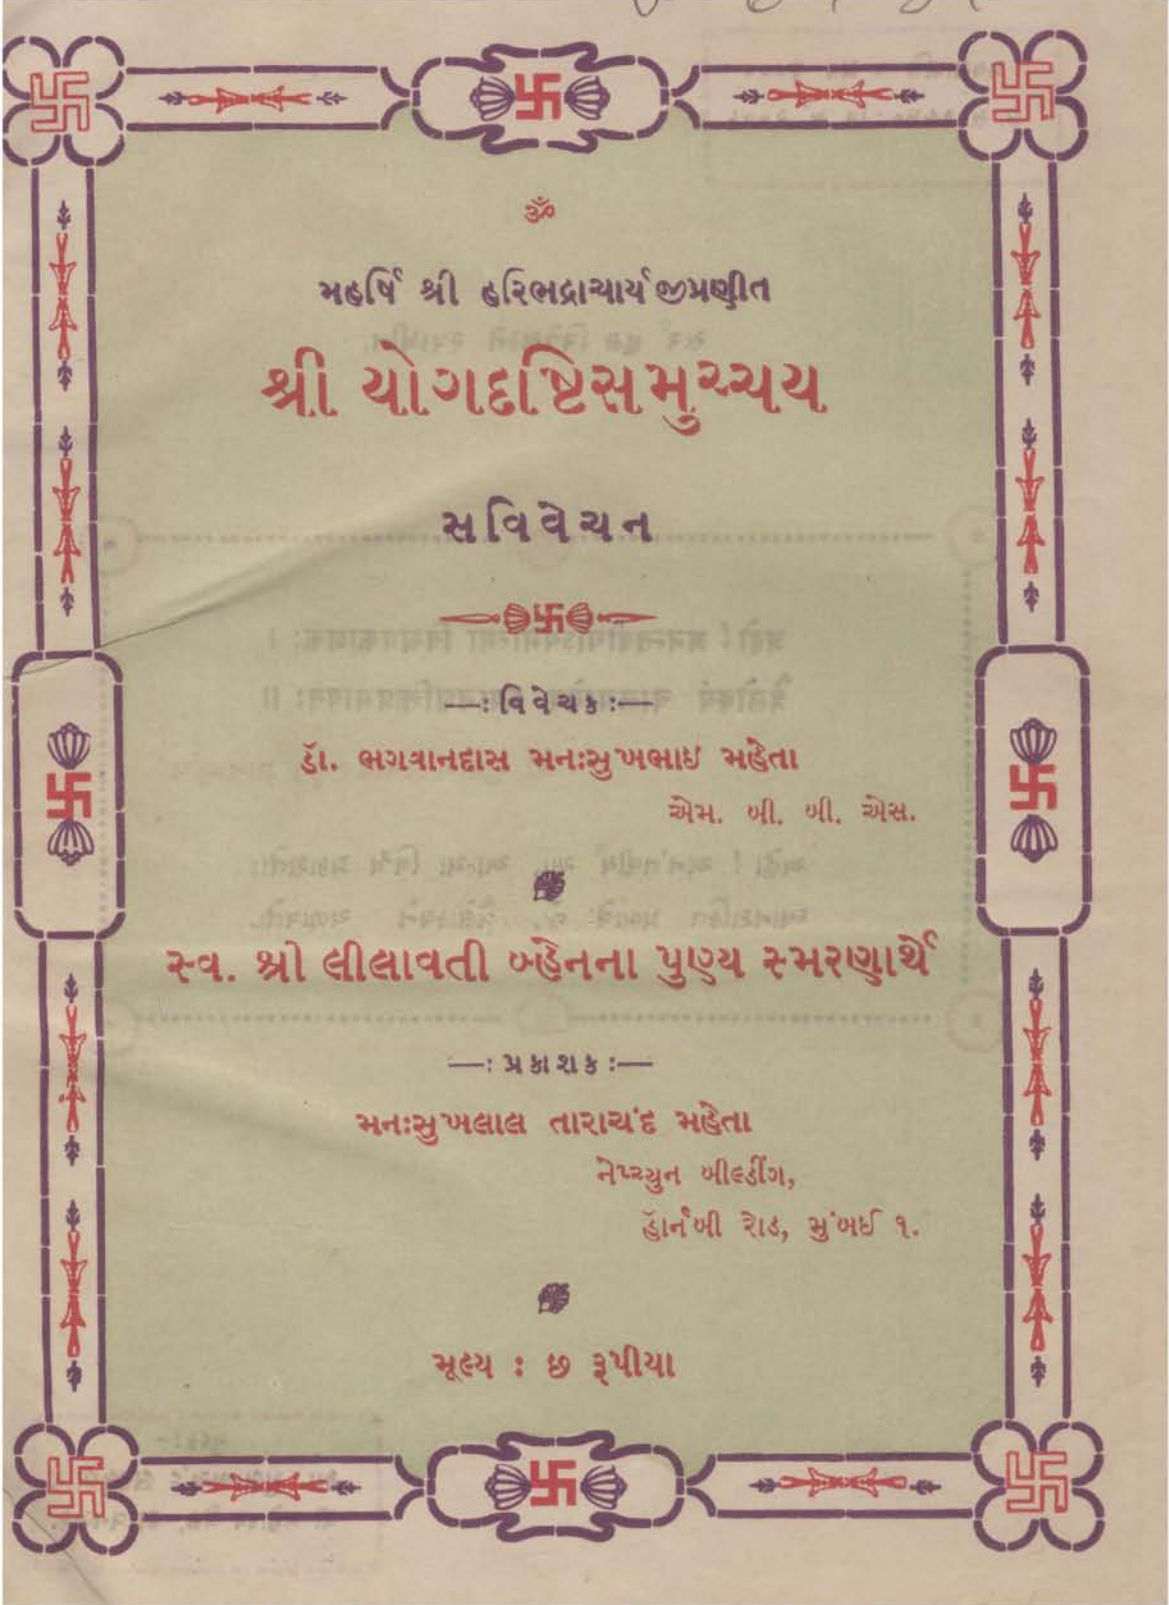 ॐ
મહર્ષિ શ્રી હરિભદ્રાચાર્યજીપ્રણીત
શ્રી યોગદૃષ્ટિસમુચ્ચય
સવિવેચન
—: વિવેચક :—
ડૉ. ભગવાનદાસ મનઃસુખભાઈ મહેતા
એમ. બી. બી. એસ.
સ્વ. શ્રી લીલાવતી બહેનના પુણ્ય સ્મરણાર્થે
—: પ્રકાશક :—
મનઃસુખલાલ તારાચંદ મહેતા
નેપ્ચ્યુન બીલ્ડીંગ,
હૉર્નબી રોડ, મુંબઈ ૧.
મૂલ્ય : છ રૂપીયા